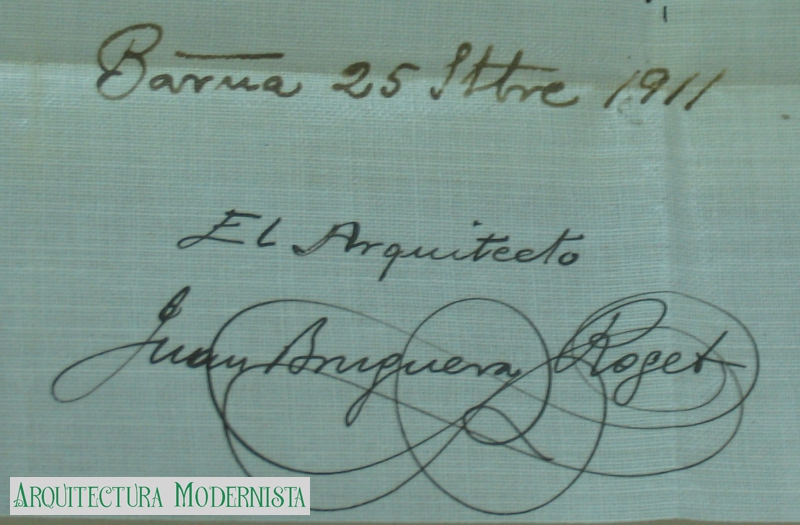 Barna 25 Sttbre 1911
El Arquitecto
Juan Bruguera Roget
Arquitectura Modernista